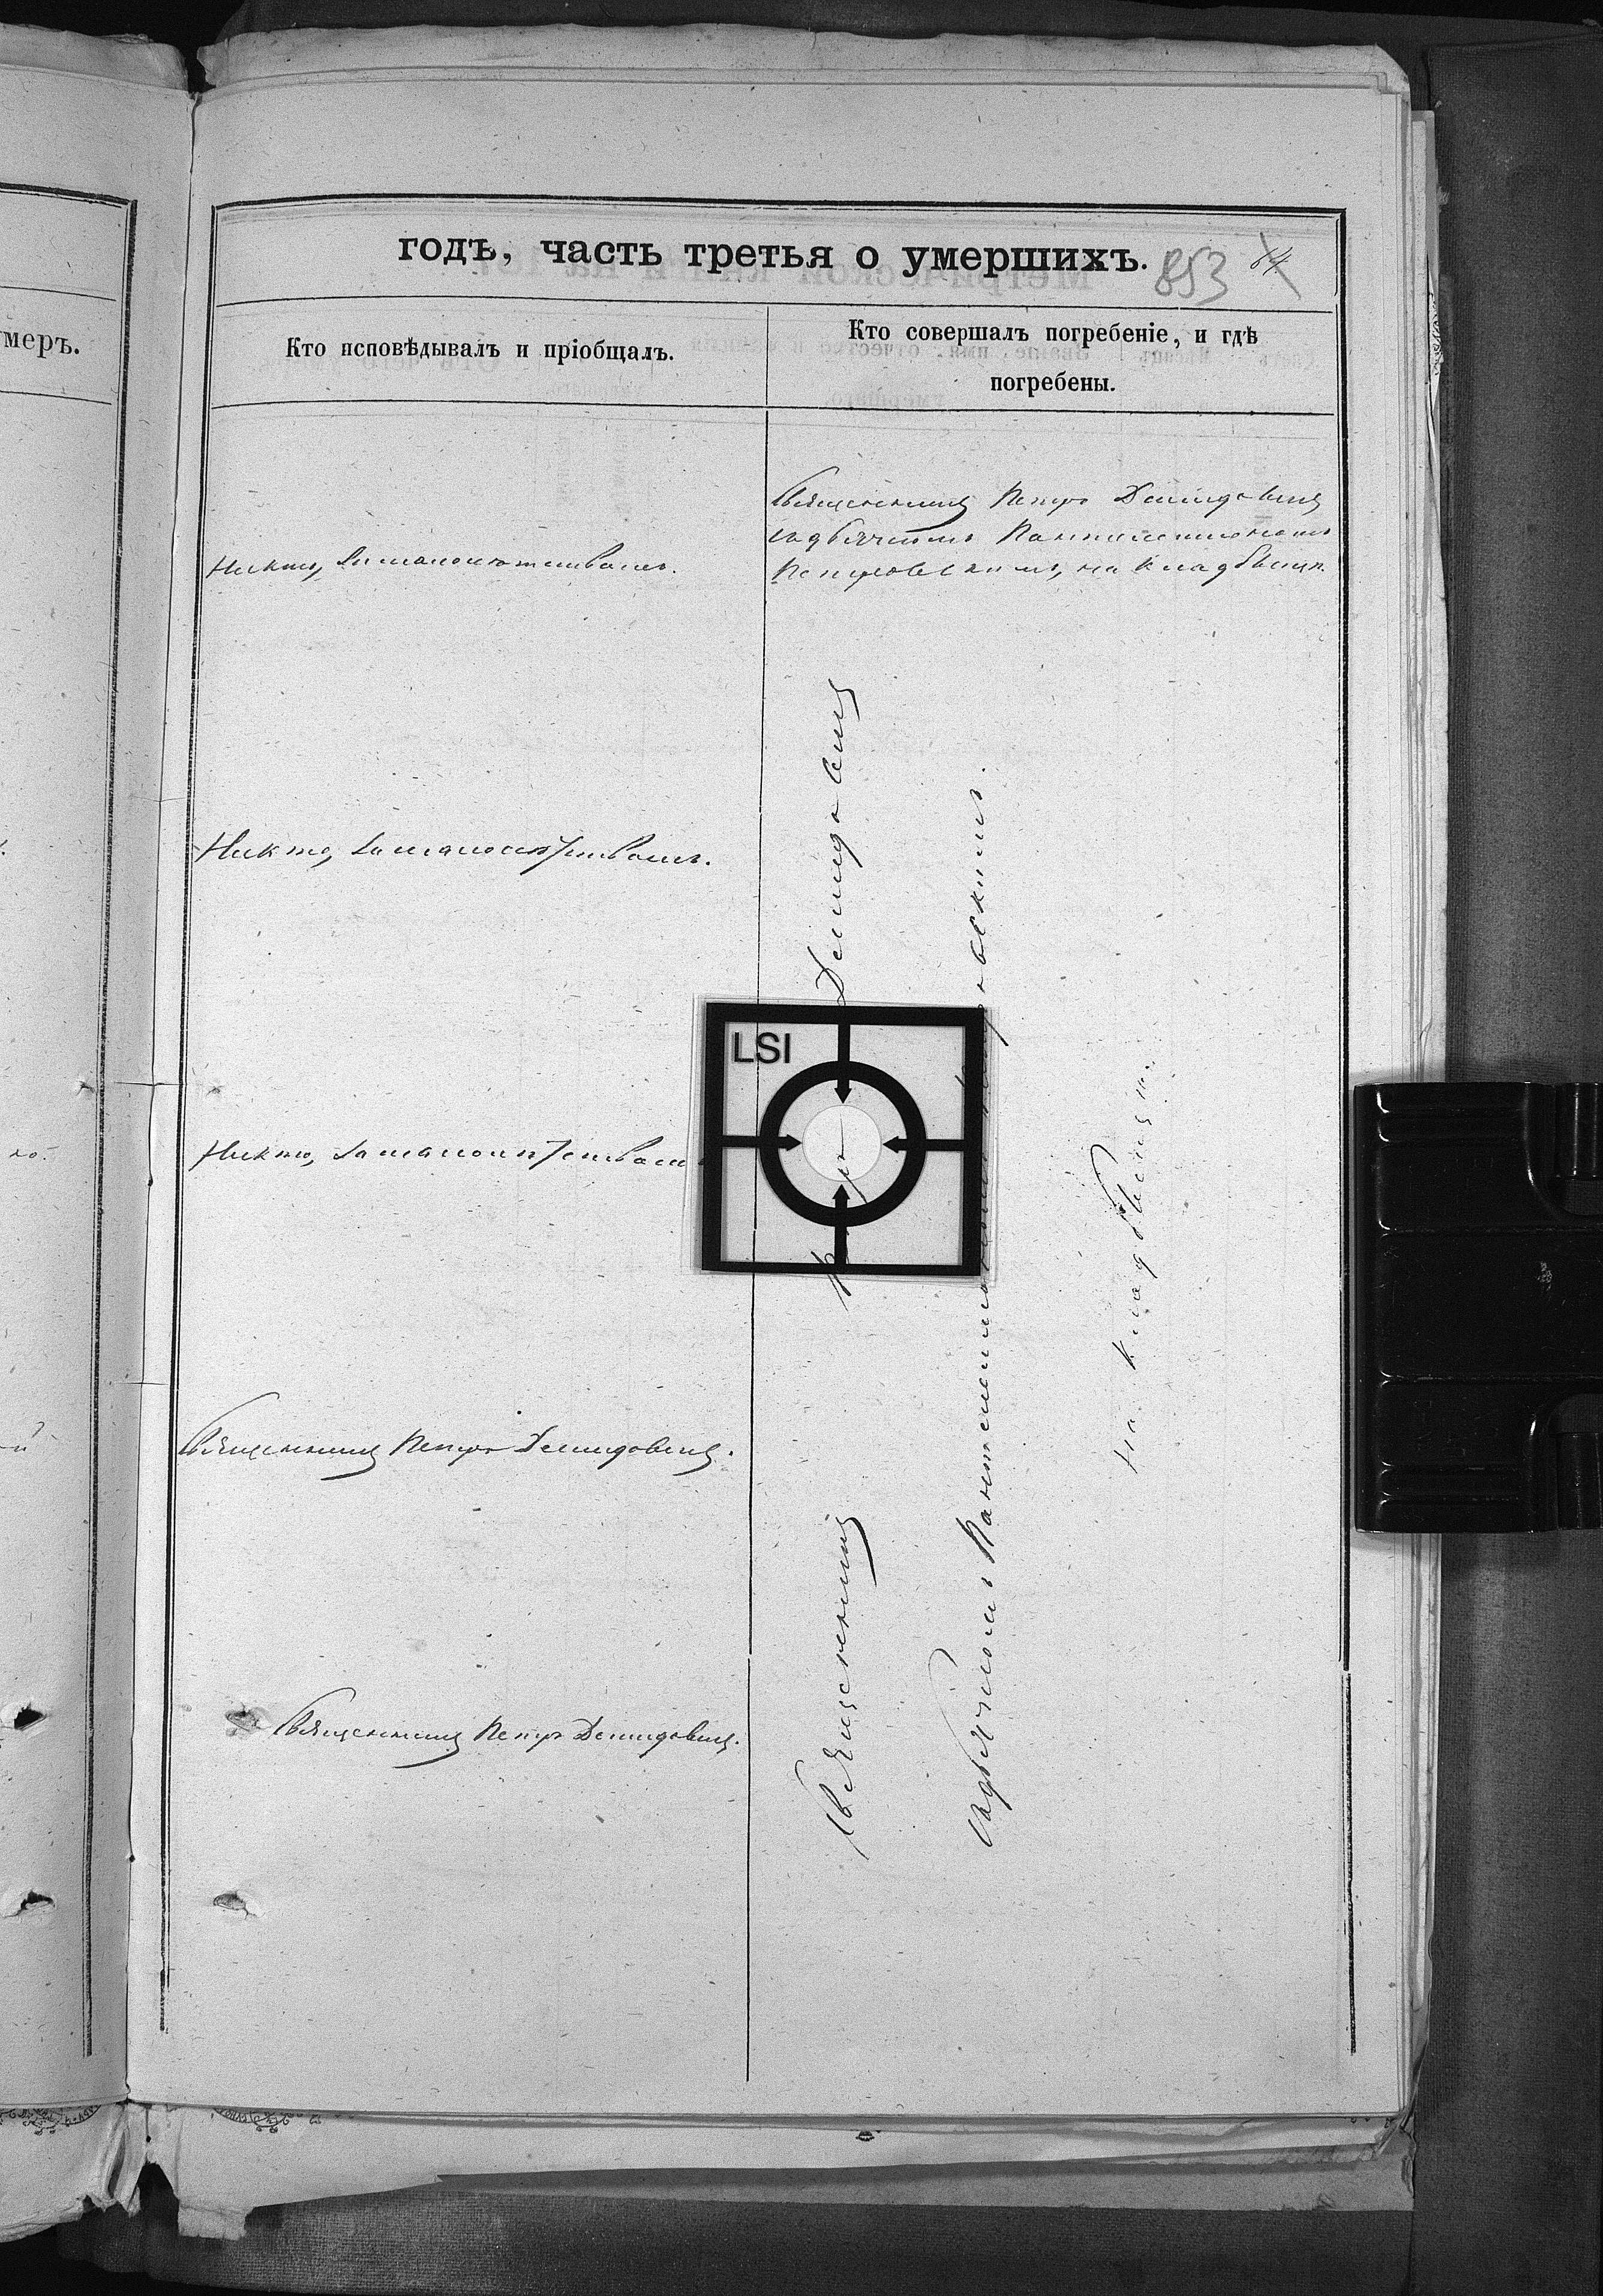 годъ, часть третья о умершихъ.
853 84
умеръ.
Кто исповѣдывалъ и пріобщалъ.
Кто совершалъ погребеніе, и гдѣ
погребены.
Священникъ Петръ Демидовичъ
съ дьячкомъ Пантелеимономъ
Петровскимъ, на кладбищѣ.
Никто, за малолѣтствомъ.
Никто, за малолѣтствомъ.
Никто, за малолѣтствомъ
Священникъ Петръ Демидовичъ.
Священникъ Петръ Демидовичъ.
Священникъ Демидовичъ
съ дьячкомъ Пантелеимономъ
на кладбищѣ.
LSI